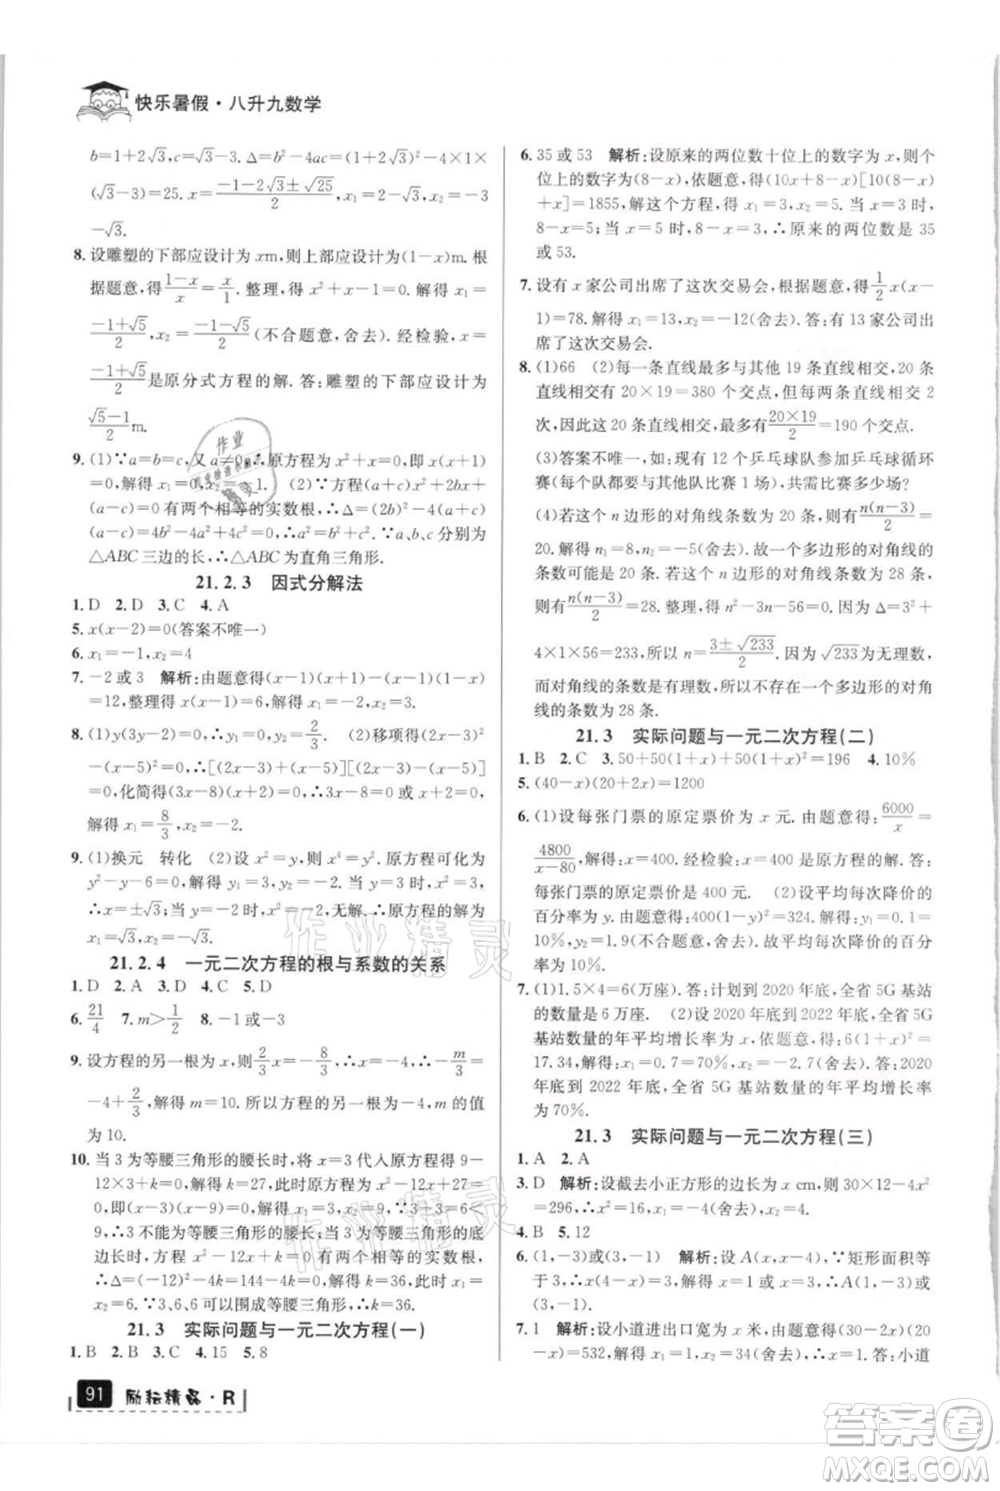 快乐暑假·八升九数学
b=1+2√3,c=√3-3. Δ=b²-4ac=(1+2√3)²-4×1×
(√3-3)=25. x=(-1-2√3±√25)/2,∴x₁=2-√3,x₂=-3
-√3.
8. 设雕塑的下部应设计为xm,则上部应设计为(1-x)m.根
据题意,得(1-x)/x=x/1.整理,得x²+x-1=0.解得x₁=
(-1+√5)/2,x₂=(-1-√5)/2(不合题意,舍去).经检验,x=
(-1+√5)/2是原分式方程的解.答:雕塑的下部应设计为
(√5-1)/2m.
9. (1)∵a=b=c,又a≠0,∴原方程可化为x²+x=0,解得
x₁=0,x₂=-1. (2)∵方程(a+c)x²+2bx+
(a-c)=0有两个相等的实数根,∴Δ=(2b)²-4(a+
c)(a-c)=0,∴4b²-4a²+4c²=0,∴a²=b²+c².∵a,b,c分别为
△ABC三边的长,∴△ABC为直角三角形.
21.2.3 因式分解法
1. D 2. D 3. C 4. A
5. x(x-2)=0(答案不唯一)
6. x₁=-1,x₂=4
7. -2或3 解析:由题意得(x-1)(x+1)-(1-x)(x-1)
=12,整理得x²-x=6,解得x₁=-2,x₂=3.
8. (1)y(3y-2)=0,∴y₁=0,y₂=2/3. (2)移项得(2x-3)²
-(x-5)²=0,∴[(2x-3)+(x-5)][(2x-3)-(x-5)]
=0,化简得(3x-8)(x+2)=0,∴3x-8=0或x+2=0,
解得x₁=8/3,x₂=-2.
9. (1)换元 转化 (2)设x²=y,则x⁴=y²,原方程可化为
y²-y-6=0,解得y₁=3,y₂=-2.当y=3时,x²=3,
∴x=±√3;当y=-2时,x²=-2,无解.∴原方程的解为
x₁=√3,x₂=-√3.
21.2.4 一元二次方程的根与系数的关系
1. D 2. A 3. D 4. C 5. D
6. 21/4 7. m>1/2 8. -1或-3
9. 设方程的另一根为x,则2/3x=-8/3,∴x=-4,∴-m/3=
-4+2/3,解得m=10.所以方程的另一根为-4,m的值
为10.
10. 当3为等腰三角形的腰长时,将x=3代入原方程得9-
12×3+k=0,解得k=27,此时原方程为x²-12x+27=
0,即(x-3)(x-9)=0,解得x₁=3,x₂=9.∵3+3=6<9,
∴3不能为等腰三角形的腰长;当3为等腰三角形的底
边长时,方程x²-12x+k=0有两个相等的实数根,
∴Δ=(-12)²-4k=144-4k=0,解得k=36,此时x₁=
x₂=6.∵3,6,6可以围成等腰三角形,∴k=36.
21.3 实际问题与一元二次方程(一)
1. B 2. B 3. C 4. 15 5. 8
91 励耘精品·R
6. 35或53 解析:设原来的两位数十位上的数字为x,则个
位上的数字为(8-x),依题意,得(10x+8-x)[10(8-x)
+x]=1855,解这个方程,得x₁=3,x₂=5.当x=3时,
8-x=5;当x=5时,8-x=3,∴原来的两位数为35
或53.
7. 设有x家公司出席了这次交易会,根据题意,得1/2x(x-
1)=78.解得x₁=13,x₂=-12(舍去).答:有13家公司出
席了这次交易会.
8. (1)66 (2)每一条直线最多与其他19条直线相交,20条
直线相交有20×19=380个交点,但每两条直线相交2
次,∴20条直线相交,最多有(20×19)/2=190个交点.
(3)答案不唯一,如:现有20个乒乓球队参加乒乓球循环
赛(每个队都要与其他队赛1场),请问要比赛多少场?
(4)若这个n边形的对角线条数为20条,则有n(n-3)/2
=20.解得n₁=8,n₂=-5(舍去).故一个多边形的对角线的
条数可能是20条.若一个n边形的对角线条数为28条,
则有n(n-3)/2=28.整理得n²-3n-56=0.因为Δ=9+
4×1×56=233,所以n=(3±√233)/2.因为√233为无理数,
而对角线的条数是有理数,所以不存在一个多边形的对角
线的条数为28条.
21.3 实际问题与一元二次方程(二)
1. B 2. C 3. 50+50(1+x)+50(1+x)²=196 4. 10%
5. (40-x)(20+2x)=1200
6. (1)设每张门票的原定票价为x元.由题意得:6000/x=
4800/(x-80),解得:x=400.经检验:x=400是原方程的解.答:
每张门票的原定票价为400元. (2)设平均每次降价的
百分率为y.由题意得:400(1-y)²=324.解得:y₁=0.1=
10%,y₂=1.9(不合题意,舍去).答:平均每次降价10%.
7. (1)1.5×4=6(万座).答:计划到2020年底,全省5G基站
的数量是6万座. (2)设2020年底到2022年底,全省5G
基站数量的年平均增长率为x,依题意,得:6(1+x)²=
17.34,解得:x₁=0.7=70%,x₂=-2.7(舍去).答:2020
年底到2022年底,全省5G基站数量的年平均增长率
为70%.
21.3 实际问题与一元二次方程(三)
1. A 2. A
3. D 解析:设截去小正方形的边长为x cm,则30×12-4x²
=296,解得x₁=4,x₂=-4(舍去).
4. B 5. 12
6. (1,-3)或(3,-1) 解析:设A(x,x-4),∵矩形面积等
于3,∴x(4-x)=3,解得x=1或x=3,∴A(1,-3)或
(3,-1).
7. 1 解析:设小道进出口宽为x米,由题意得(30-2x)(20
-x)=532,解得x₁=1,x₂=34(不合题意,舍去).答:小道
作业精灵
作业精灵
答案圈
MXQE.COM